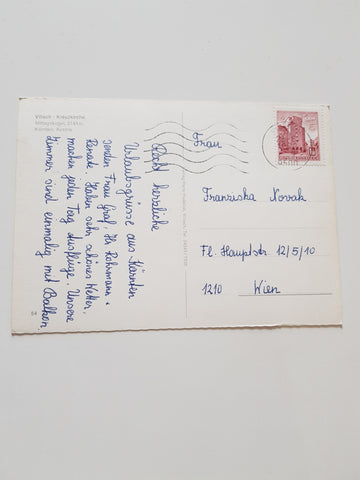 Villach - Kreuzkirche
Mittagskogel, 2143 m
Kärnten, Austria
Recht herzliche
Urlaubsgrüsse aus Kärnten
senden Frau Graf, Hr. Rohrmann +
Renate. Haben sehr schönes Wetter,
machen jeden Tag Ausflüge. Unsere
Zimmer sind einmalig mit Balkon.
54
Frau
Franziska Novak
Fl. Hauptstr 12/5/10
1210 Wien